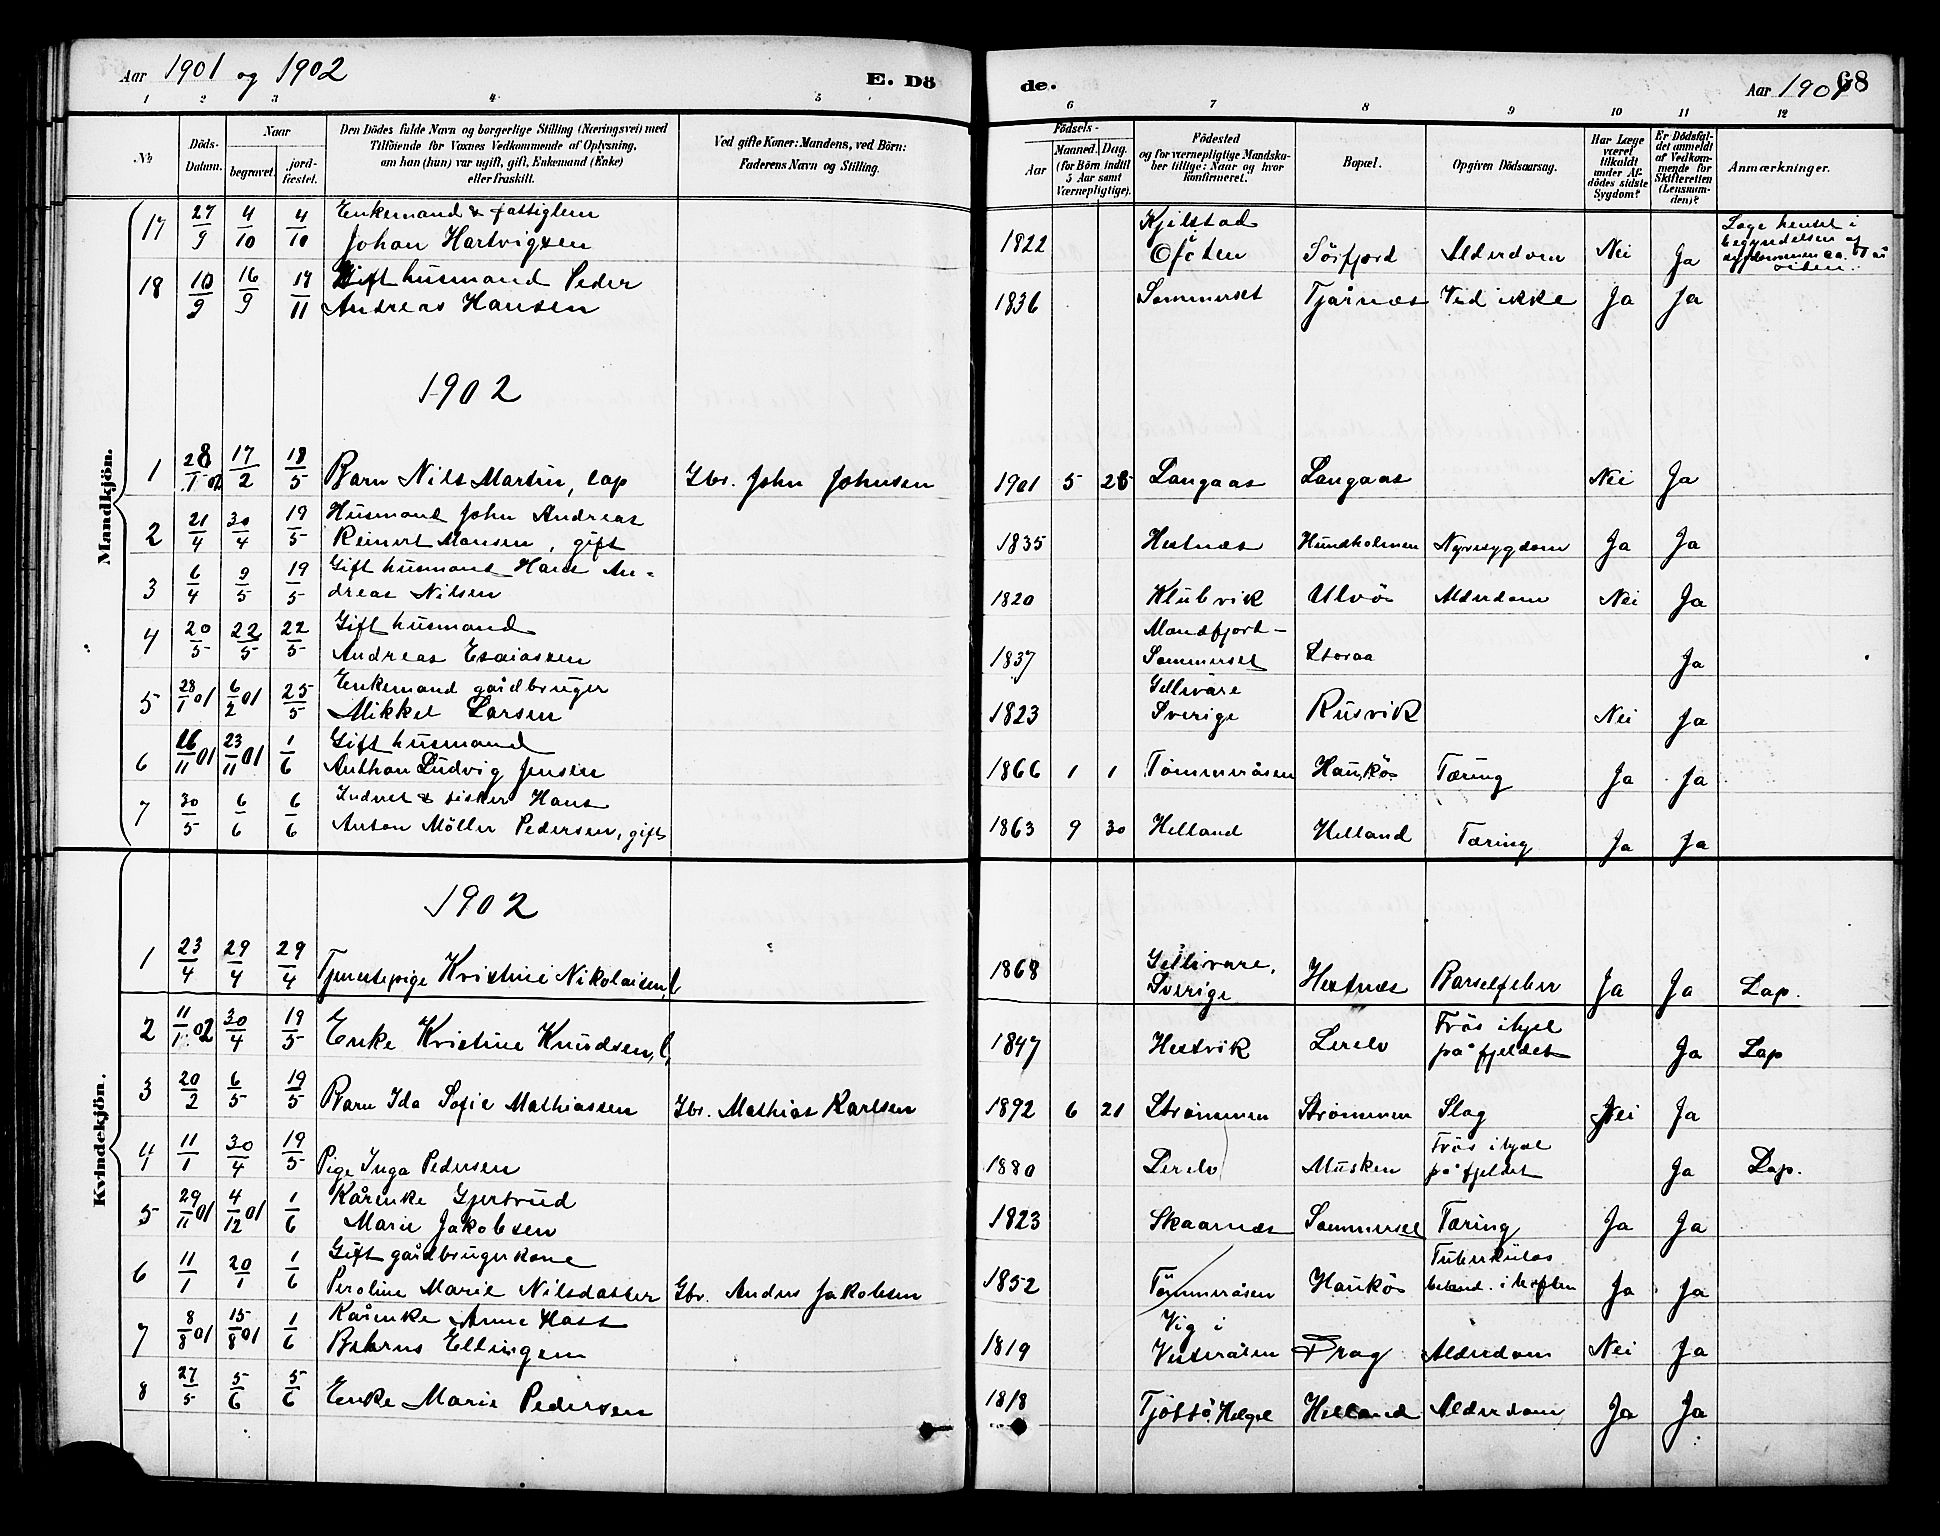 Aar 1901 og 1902 E. Dö
de. Aar 1901 68
1 2 3 4 5 6 7 8 9 10 11 12
№ Döds-Datum. Naar begravet. jord-fæstet.
Den Dödes fulde Navn og borgerlige Stilling (Næringsvei) med Tilföiende for Voxnes Vedkommende af Oplysning, om han (hun) var ugift, gift, Enkemand (Enke) eller fraskilt.
Ved gifte Koner: Mandens, ved Börn: Faderens Navn og Stilling.
Födsels- Aar Maaned. Dag. (for Börn indtil 5 Aar samt Værnepligtige).
Födested og for værnepligtige Mandskaber tillige: Naar og hvor konfirmeret.
Bopæl.
Opgiven Dödsaarsag.
Har Læge været tilkaldt under Afdödes sidste Sygdom?
Er Dödsfaldet anmeldt af Vedkommende for Skifteretten (Lensmanden)?
Anmærkninger.
Mandkjön.
17 27/9 4/10 4/10 Enkemand & fattiglem Johan Hartvigsen 1822 Kjelstad Ofoten Sörfjord Alderdom Nei Ja Læge hentet i begyndelsen af sygdommen
18 10/9 16/9 17/11 Gift husmand Peder Andreas Hansen 1836 Sommerset Tjårnæs Ved ikke Ja Ja
1902
1 28/1 02 17/2 18/5 Barn Nils Martin, lap Gbr. John Johnsen 1901 5 25 Langaas Langaas Nei Ja
2 21/4 30/4 19/5 Husmand John Andreas Reinert Mansen, gift 1835 Hestnæs Hundholmen Nyresygdom Ja Ja
3 6/4 9/5 19/5 Gift husmand Hans Andreas Nilsen 1820 Klubvik Ulvö Alderdom Nei Ja
4 20/5 22/5 22/5 Gift husmand Andreas Esaiassen 1837 Mandfjord-Sommerset Storaa Ja
5 28/1 01 6/2 01 25/5 Enkemand gårdbruger Mikkel Larsen 1823 Gellivare Sverige Rusvik Nei Ja
6 26/11 01 23/11 01 1/6 Gift husmand Anthon Ludvig Jensen 1866 1 1 Tømmeråsen Haukö Tæring Ja Ja
7 30/5 6/6 6/6 Inderst & fisker Hans Anton Möller Pedersen, gift 1863 9 30 Helland Helland Tæring Ja Ja
1902
Kvindekjön.
1 23/4 29/4 29/4 Tjenestepige Kristine Nikolaisen, l 1868 Gellivare, Sverige Hestnæs Barselfeber Ja Ja Lap.
2 11/1 02 30/4 19/5 Enke Kristine Knudsen, l, 1847 Hestvik Lerelv Frös ihjel på fjeldet Ja Lap
3 20/2 6/5 19/5 Barn Ida Sofie Mathiassen Gbr. Mathias Karlsen 1892 6 21 Strømmen Strømmen Slag Nei Ja
4 11/1 30/4 19/5 Pige Inga Pedersen 1880 Lerelv Musken Frös ihjel på fjeldet Ja Lap.
5 29/11 01 4/12 01 1/6 Kårenke Gjertrud Marie Jakobsen 1823 Skaarnæs Sommerset Tæring Ja Ja
6 11/1 20/1 1/6 Gift gårdbrugerkone Peroline Marie Nilsdatter Gbr. Anders Jakobsen 1852 Tömmeråsen Haukö Tuberkuløs betænd. i hoften Ja Ja
7 8/8 01 15/8 01 1/6 Kårenke Anne Hass Behrns Ellingsen 1819 Vig i Vesterålen Drag Alderdom Nei Ja
8 27/5 5/6 5/6 Enke Marie Pedersen 1818 Tjöttö, Helgel Helland Alderdom Ja Ja